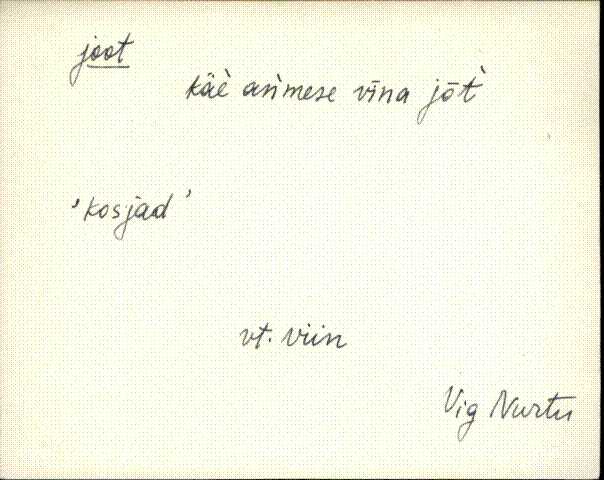 joot
käè asìmese vīna jōt̀
'kosjad'
vt. viin
Vig Nurtu